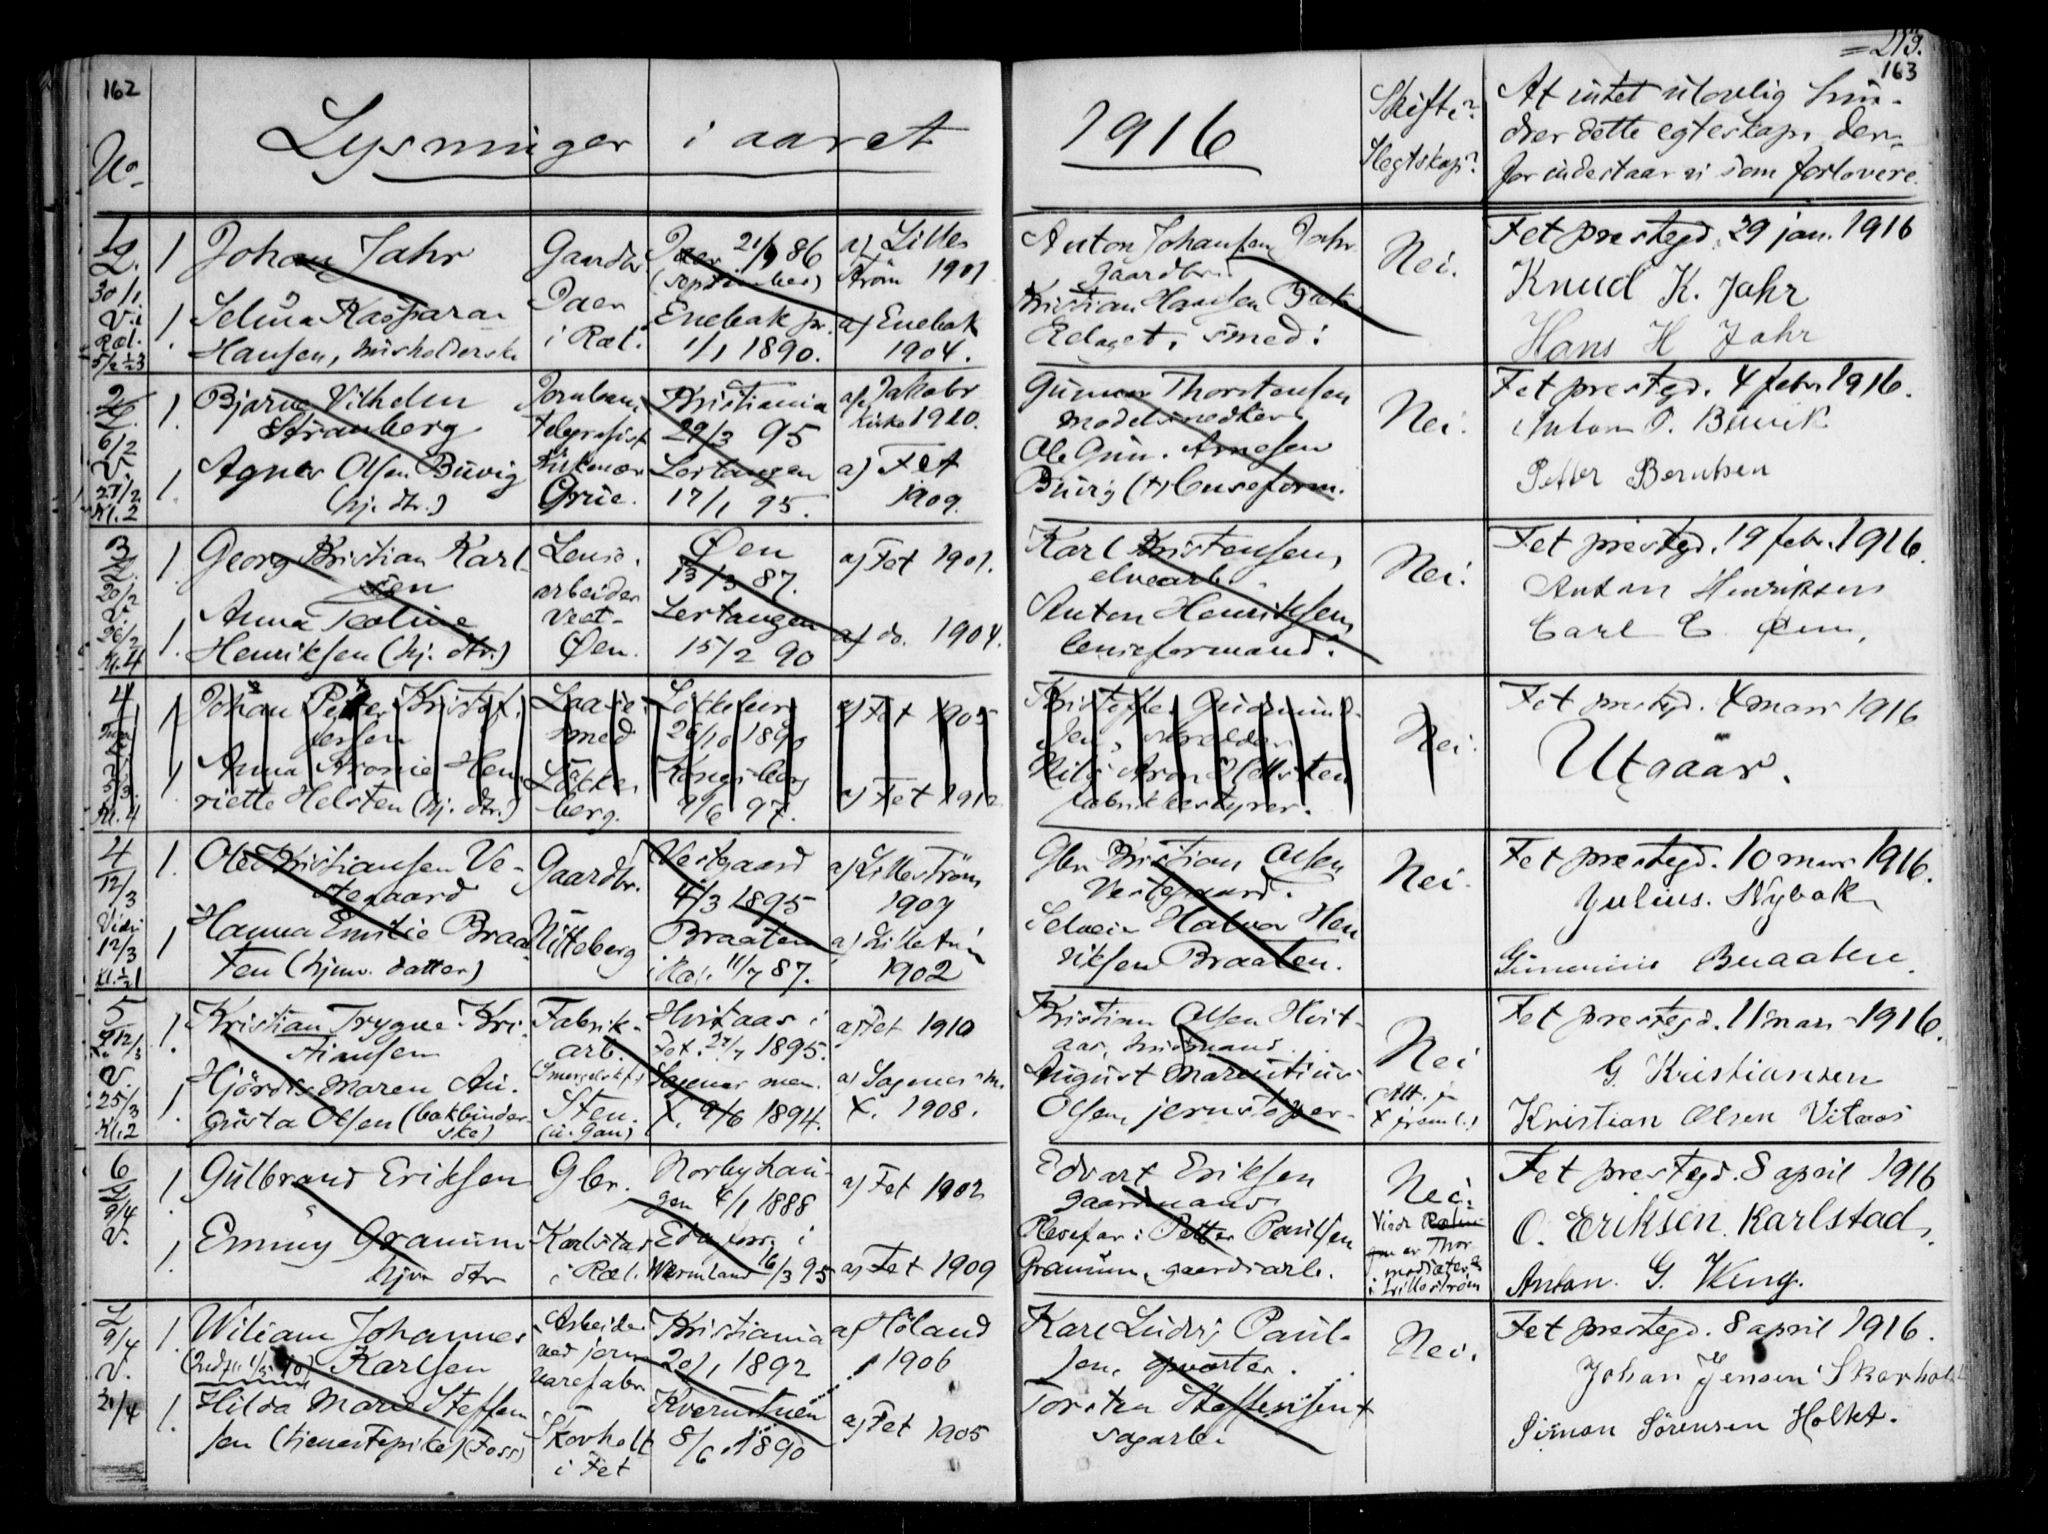 162
= 213.
163
No.
Lysninger i aaret
1916
Skifte?
Slegtskap?
At intet ulovlig hin-
drer dette egteskap der-
for indestaar vi som forlovere.
1
L.
30/1.
V. i
Ræl.
5/2
1 Johan Jahr
Gaardbr.
21/9 86
(september)
a) Lille
strøm 1901
Anton Johansen Jahr
gaardbr.
Nei.
Fet prestegd. 29 jan. 1916
Knud K. Jahr
1. Selma Kaspara
Hansen, husholderske
i Ræl.
Enebak pr.
1/1 1890.
a) Enebak
1904.
Kristian Hansen
smed.
Hans H Jahr
2
L.
6/2
V.
27/2
Kl. 2
1. Bjarne Vilhelm
Stranberg
Telegrafist
Kristiania
29/3 95
a) Jakobs
kirke 1910.
Gunnar Thorstensen
modelsnedker
Nei.
Fet prestegd. 4 febr. 1916.
Anton O. Buvik
1. Agnes Olsen Buvig
(hj. dtr.)
Grue.
Lertangen
17/1 95.
a) Fet
1909.
Ole Gun. Arnesen
Buvig (+) lenseform.
Petter Berntsen
3
L.
20/2
V.
26/2
Kl. 4
1. Georg Kristian Karl-
sen
Lense-
arbeider
Øen
13/3 87.
a) Fet 1901.
Karl Kristensen,
elvearb.
Nei.
Fet prestegd. 19 febr. 1916.
Anton Henriksen
1. Anna Teoline
Henriksen (hj. dtr.)
Vest-
Øen.
Lertangen
15/2 90
a) do. 1904.
Anton Henriksen,
lenseformand.
Carl C. Øen,
4
Kl. 4
1 Johan Peter Kristof-
fersen
Laase-
smed
Løkeberg
26/10 1890
a) Fet 1905
Kristoffer Gudmund-
sen, skrædder
Nei.
Fet prestegd. 4 mars 1916
Utgaar.
1 Anna Aronie Hen-
riette Helsten (hj. dtr.)
Løke-
berg.
Kongsberg
9/6 97.
a) Fet 1912
Nils Aron Helsten
fabrikbestyrer.
4
12/3
Viet
12/3
1. Ole Kristiansen Ve-
stegaard
Gaardbr.
Vestgaard
4/3 1895
a) Lillestrøm
1907
Gbr. Kristian Olsen
Vestegaard.
Nei.
Fet prestegd. 10 mars 1916.
Julius. Nybak
1 Hanna Emilie Braa-
ten (hjemv. datter)
Nitteberg
Braaten
i Ræl. 11/7 87.
a) Lillestrøm
1902
Selveier Halvor Hen
riksen Braaten.
Braaten.
5
L. 12/3
V.
25/3
Kl. 2
1. Kristian Trygve Kri-
stiansen
Fabrik-
arb.
Hvitaas i
Fet. 27/7 1895.
a) Fet 1910
Kristian Olsen Hvit-
aas, husmand
Nei
Fet prestegd. 11 mars 1916.
G. Kristiansen
1. Hjørdis Maren Au-
gusta Olsen (bokbinder-
ske)
Sten
(ii. Gan)
Sagenes men.
X. 9/6 1894.
a) Sagenes m.
X. 1908.
August Marentius
Olsen, jernstøper
(Att. fr.
X freml.)
Kristian Olsen Vitaas
6
L.
9/4
V.
1. Gulbrand Eriksen
Gbr.
Norbyhau-
gen 4/1 1888
a) Fet 1902
Edvart Eriksen
gaardmand
Nei.
Fet prestegd. 8 april 1916
O. Eriksen Karlstad,
1. Emmy Granum
hjv. dtr
Karlstad
i Ræl.
Eda i
Wermland 16/3 95
a) Fet 1909
Plesefar: Petter Paulsen
Granum, gaardsarb.
Viede
i Lillestrøm
Anton. G. Weng.
L
9/4
V.
30/4
1. Wiliam Johannes
Karlsen
Arbeider
ved jern
varefabr.
Kristiania
20/1 1892
a) Høland
1906
Karl Ludvig Paul-
sen,
Nei.
Fet prestegd. 8 april 1916.
Johan Jensen Skovholt
1. Hilda Marie Steffen-
sen (tjenestepike) (Foss)
Skovholt
i Fet
8/6 1890
a) Fet 1905
Torsten Steffensen +
sagarb.
Simon Sørensen Holtet.